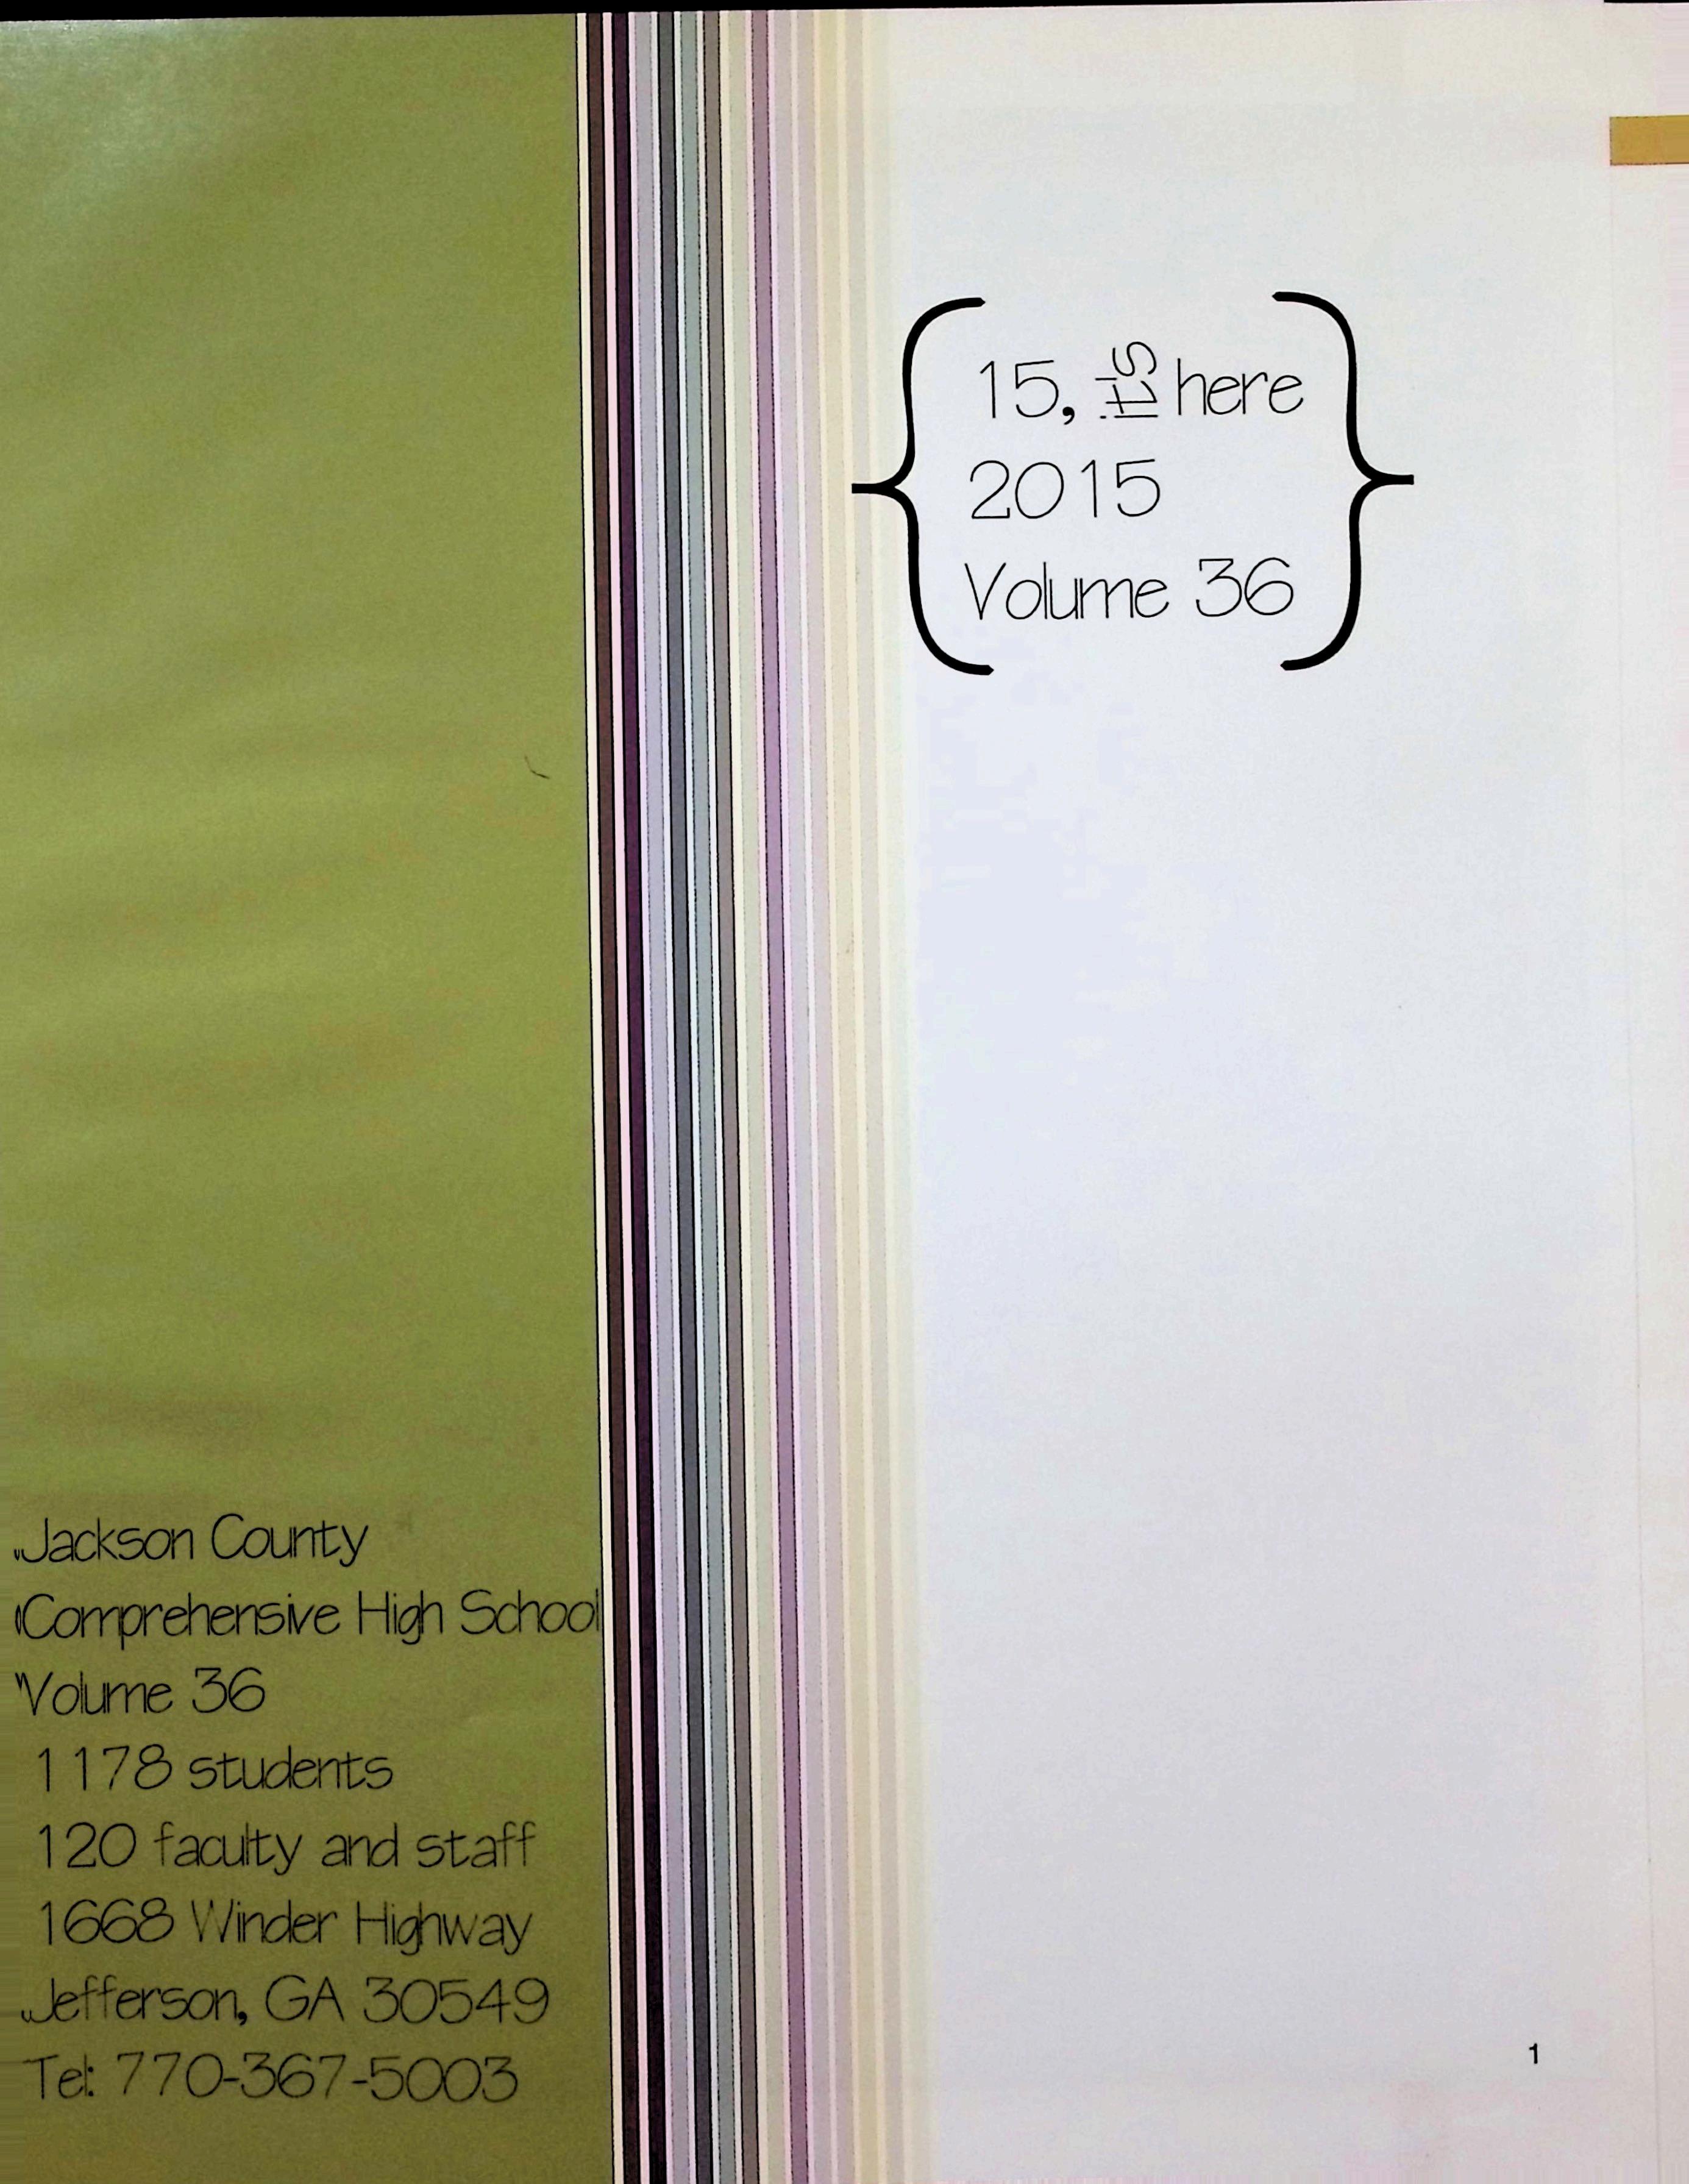 15, its here
2015
Volume 36
Jackson County
Comprehensive High School
Volume 36
1178 students
120 faculty and staff
1668 Winder Highway
Jefferson, GA 30549
Tel: 770-367-5003
1